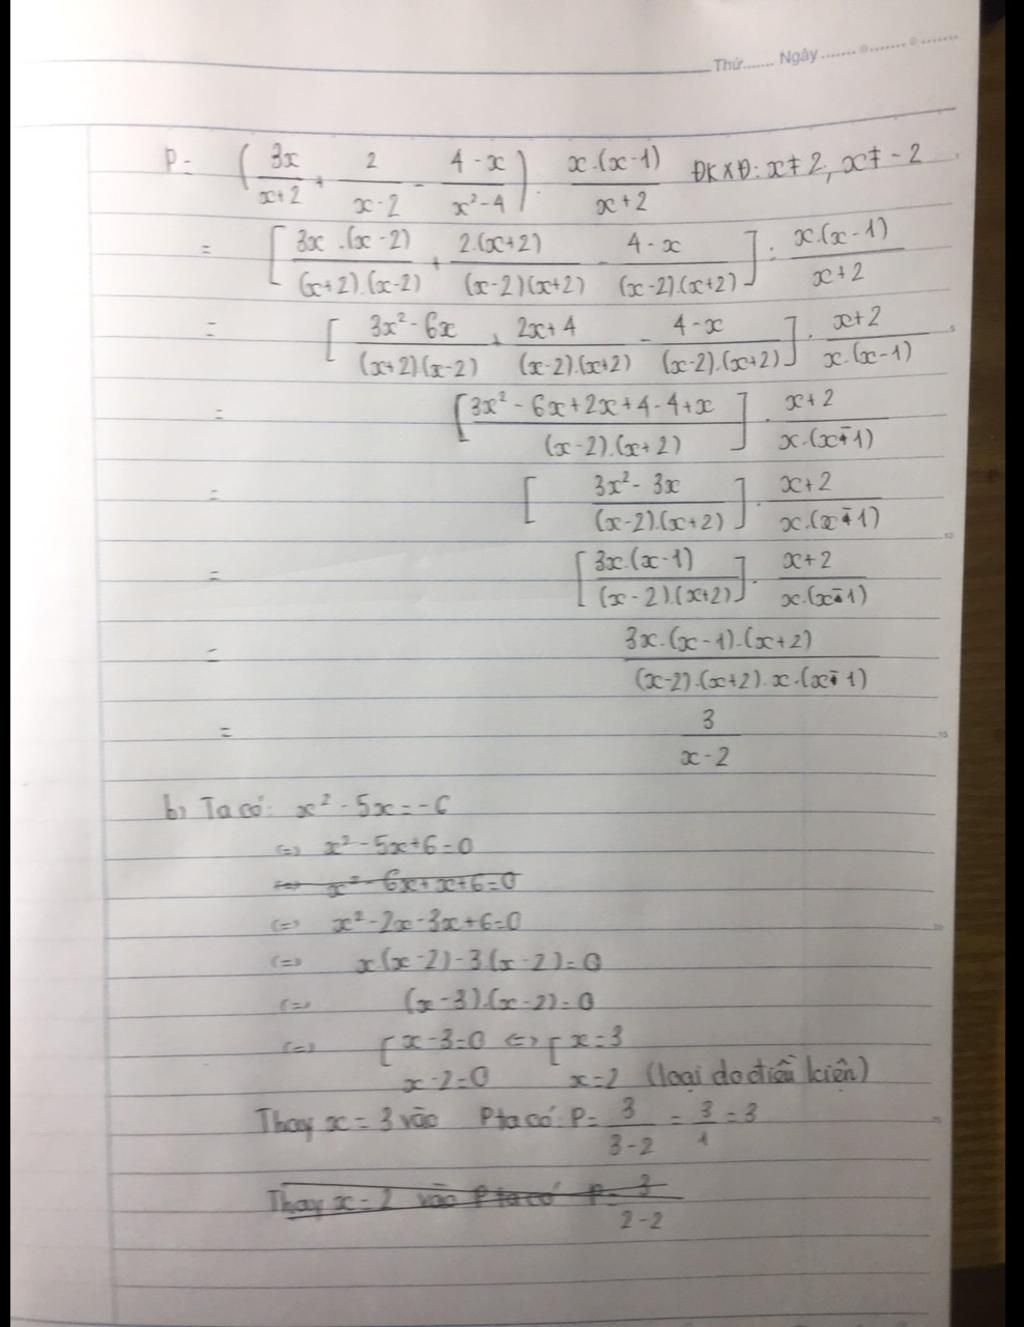 Thứ....... Ngày ....... o....... o .......
P = (3x/(x+2) + 2/(x-2) - (4-x)/(x²-4)) : x.(x-1)/(x+2) ĐKXĐ: x≠2, x≠-2
= [3x.(x-2)/((x+2).(x-2)) + 2.(x+2)/((x-2)(x+2)) - (4-x)/((x-2).(x+2))] : x.(x-1)/(x+2)
= [(3x²-6x)/((x+2).(x-2)) + (2x+4)/((x-2).(x+2)) - (4-x)/((x-2).(x+2))] . (x+2)/(x.(x-1))
= [(3x²-6x+2x+4-4+x)/((x-2).(x+2))] . (x+2)/(x.(x-1))
= [(3x²-3x)/((x-2).(x+2))] . (x+2)/(x.(x-1))
= [3x.(x-1)/((x-2).(x+2))] . (x+2)/(x.(x-1))
= 3x.(x-1).(x+2)/((x-2).(x+2).x.(x-1))
= 3/(x-2)
b) Ta có: x²-5x=-6
<=> x²-5x+6=0
<=> x²-6x+x+6=0
<=> x²-2x-3x+6=0
<=> x(x-2)-3(x-2)=0
<=> (x-3).(x-2)=0
<=> [x-3=0 <=> [x=3
x-2=0 x=2 (loại do điều kiện)
Thay x=3 vào P ta có: P=3/(3-2)=3/1=3
Thay x=2 vào P ta có P=3/(2-2)